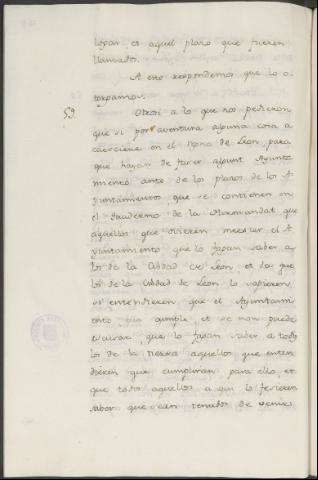 logar et aquel plazo que fueren
llamados.
A esto respondemos que lo o-
torgamos.
59. Otrosi a lo que nos pedieron
que si por aventura alguna cosa a
caesciere en el Regno de Leon, para
que hayan de facer algunt Ayunta
miento ante de los plazos de los A-
yuntamientos, que se contienen en
el Quaderno de la Hermandat que
aquellos que ovieren mester el A-
yuntamiento que lo fagan saber a
los de la Cibdad de Leon, et des que
los de la Cibdad de Leon lo sopieren,
si entendieren que el Ayuntami-
ento que cumple, et se non puede
escusar, que lo fagan saber a todos
los de la tierra aquellos que enten
dieren que cumplirán para ello, et
que todos aquellos a qui lo fesieren
saber que sean tenudos de venir